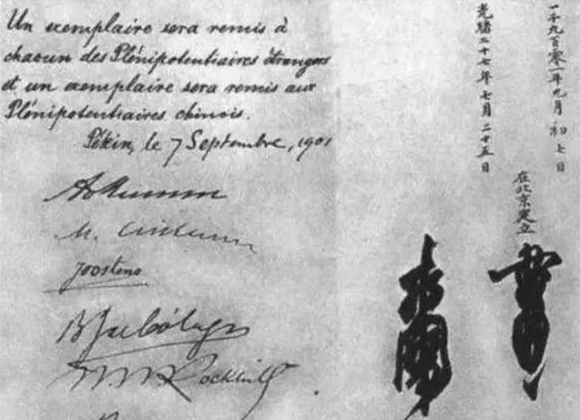 Un exemplaire sera remis à
chacun des Plénipotentiaires étrangers
et un exemplaire sera remis aux
Plénipotentiaires chinois.
Pékin, le 7 Septembre, 1901
Joostens
Rockhill
一千九百零一年九月初七日
光緒二十七年七月二十五日
在北京定立